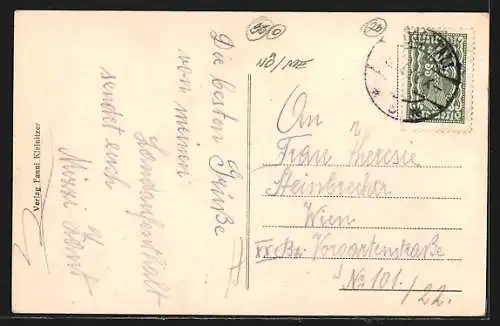 Die besten Grüße
von meinem
Landaufenthalt
sendet euch
Mizzi
Verlag Fanni Kleinitzer
NÖ/ME
An
Frau Theresie
Steinbrecher
Wien
XX. Bez. Vorgartenstraße
No 101./22.